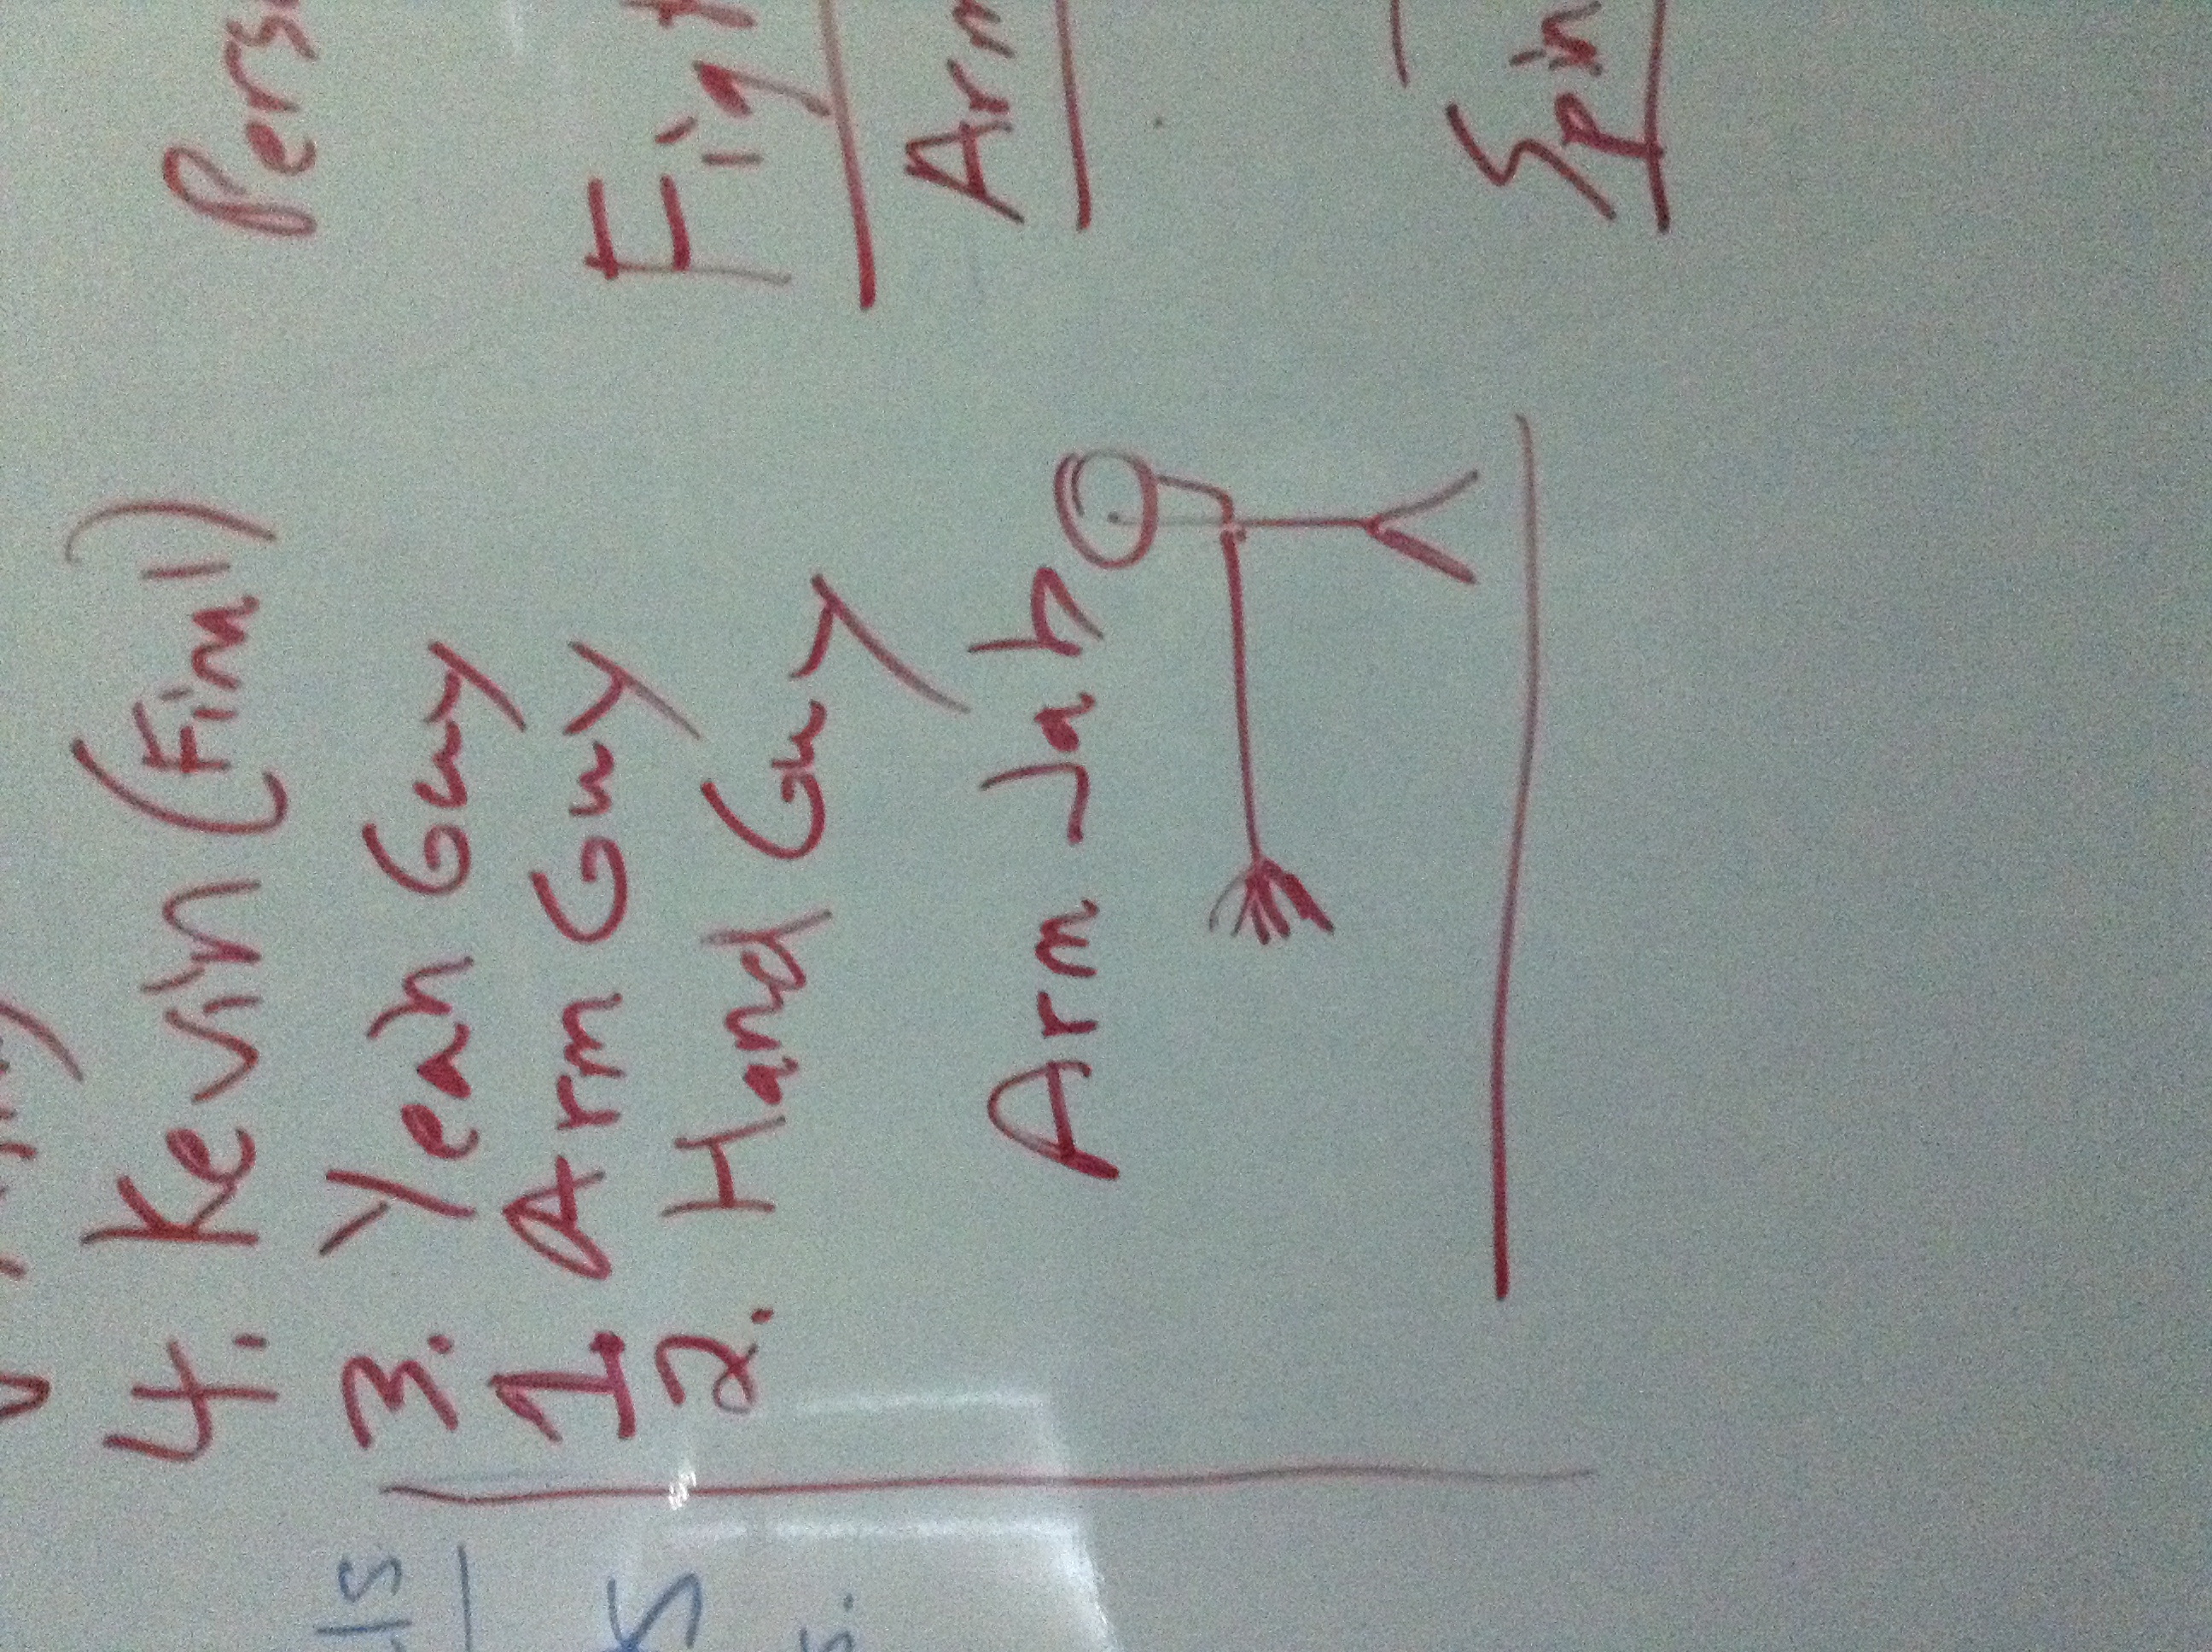 4. Kevin (Final)
3. Yeah Guy
1. Arm Guy
2. Hand Guy
Arm Jab
ls
s.
Pers
Fig
Arm
Spin